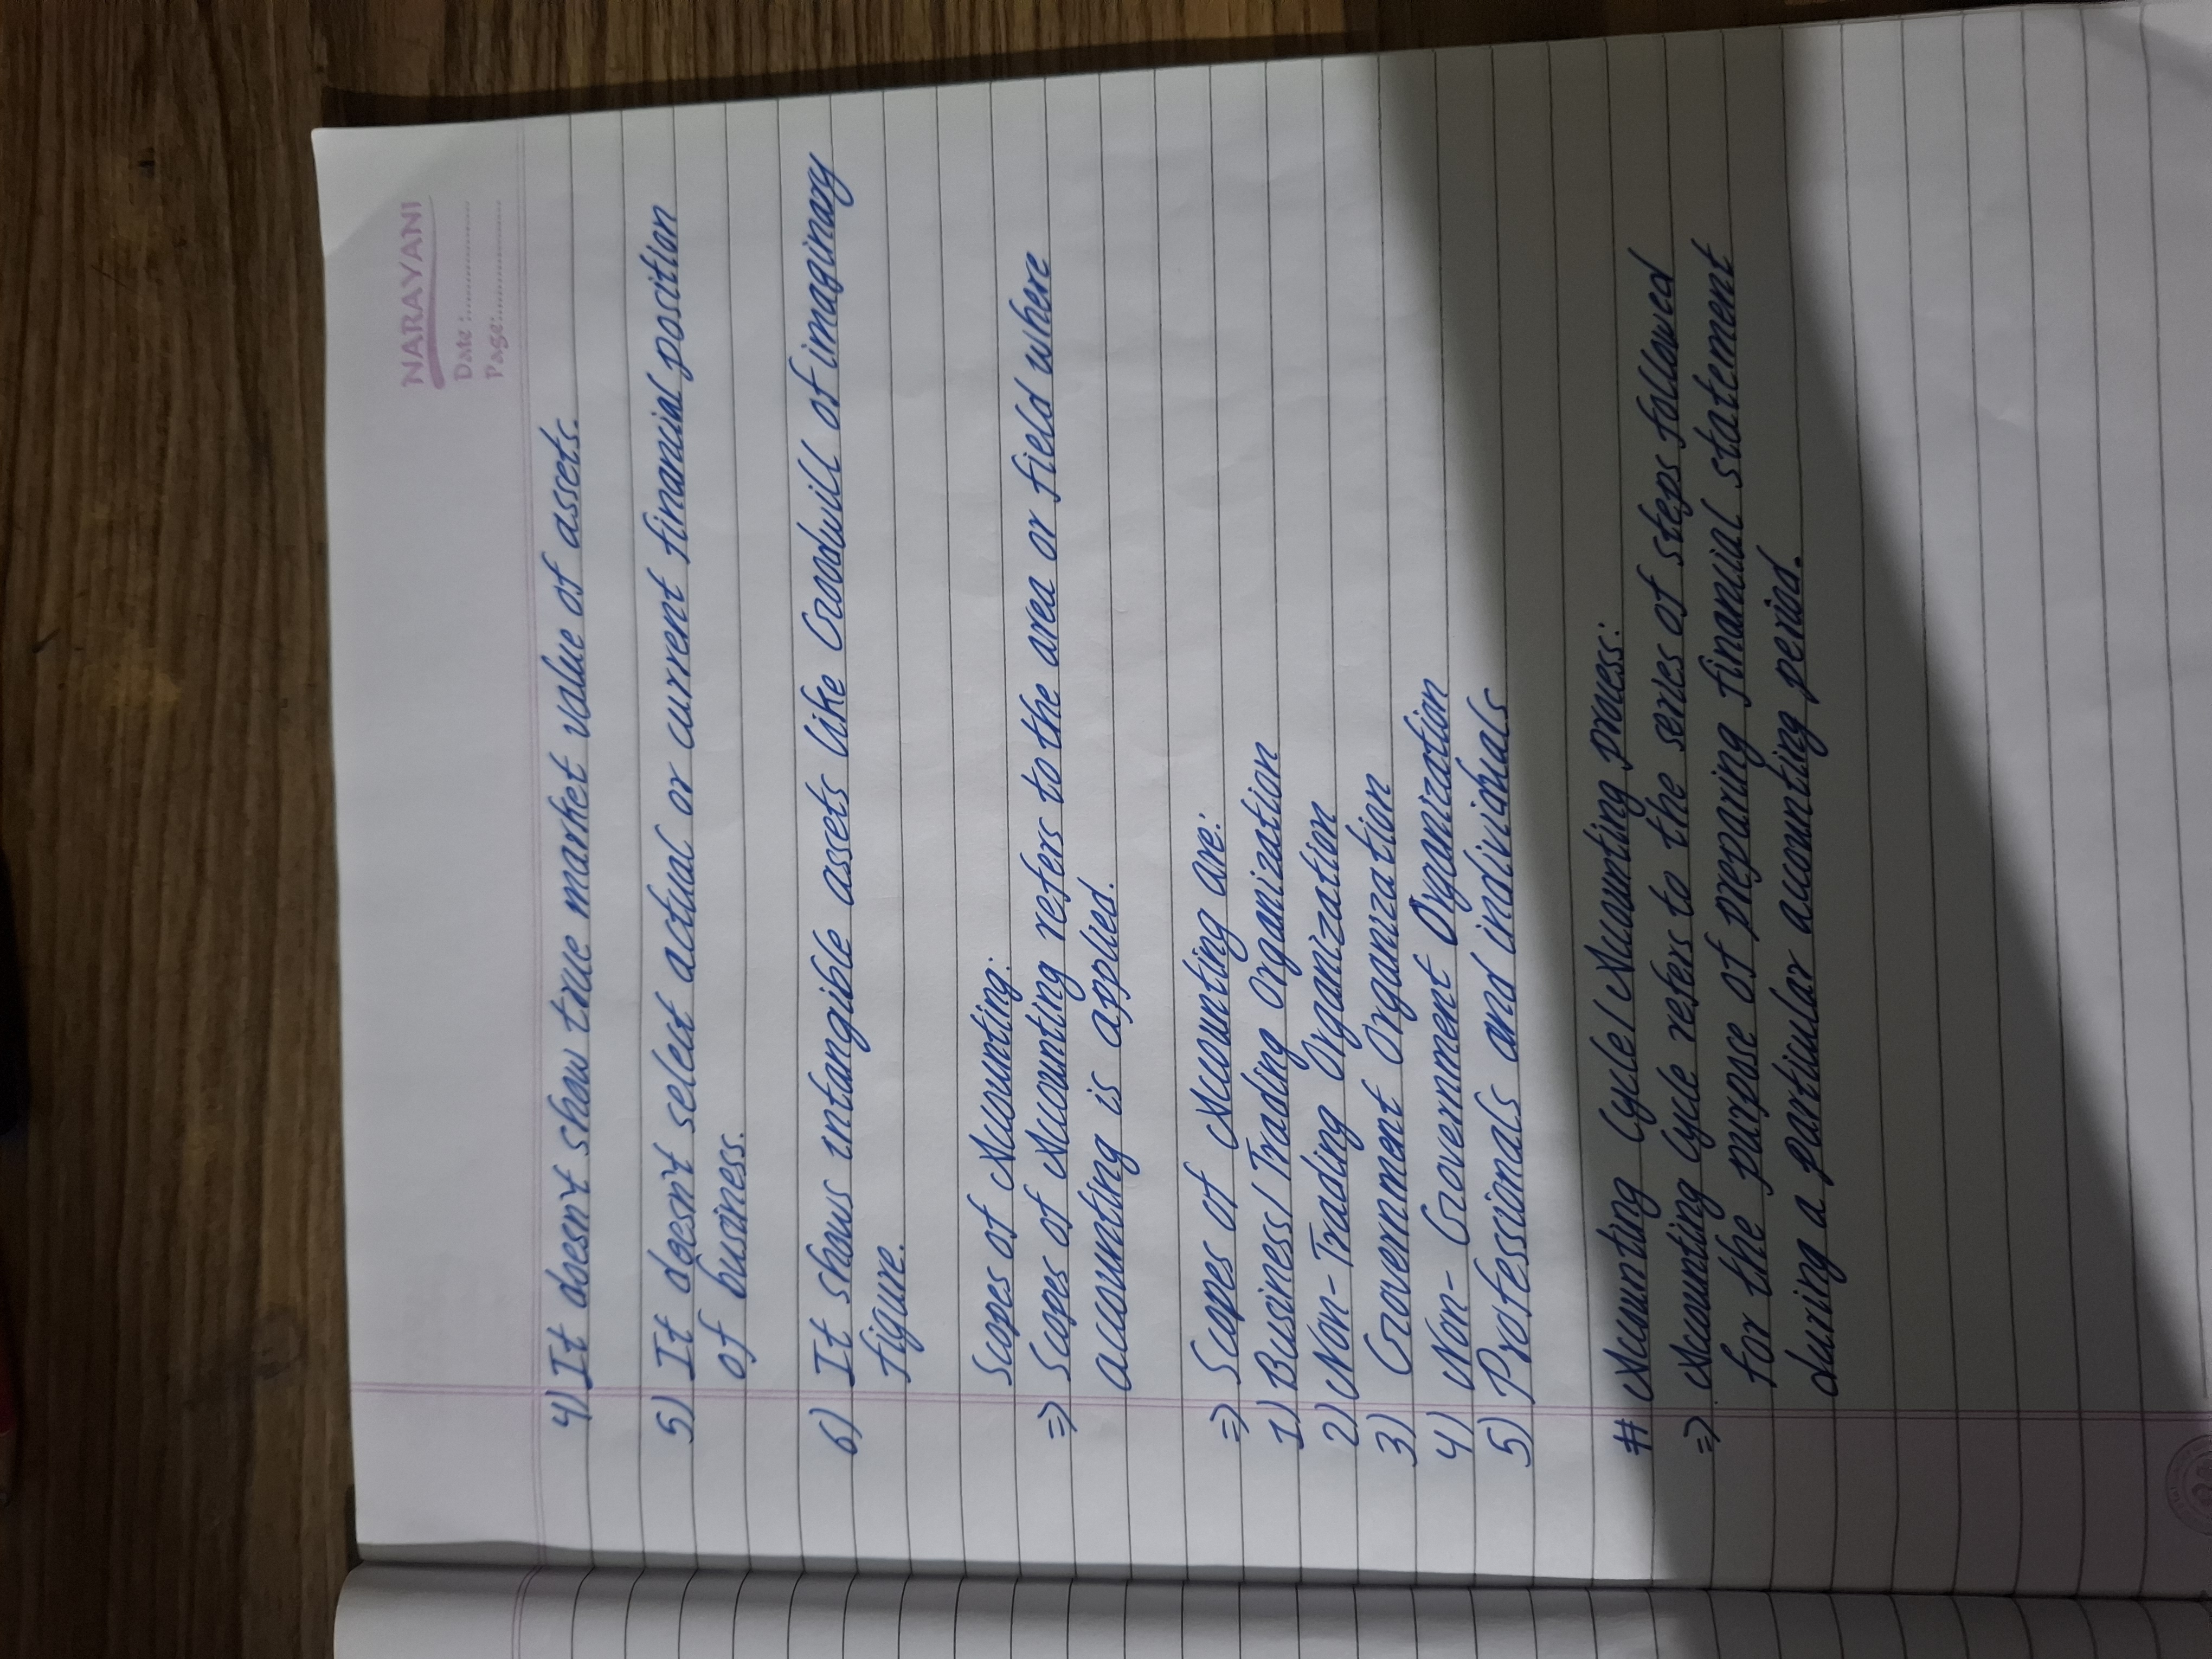 NARAYANI
Date :...................
Page:...................
4) It doesn't show true market value of assets.
5) It doesn't select actual or current financial position
of business.
6) It shows intangible assets like Goodwill of imaginary
figure.
Scopes of Accounting:
=) Scopes of Accounting refers to the area or field where
accounting is applied.
=) Scopes of Accounting are:
1) Business/Trading Organization
2) Non-Trading Organization
3) Government Organization
4) Non- Government Organization
5) Professionals and individuals
# Accounting Cycle/Accounting process:
=) Accounting Cycle refers to the series of steps followed
for the purpose of preparing financial statement
during a particular accounting period.